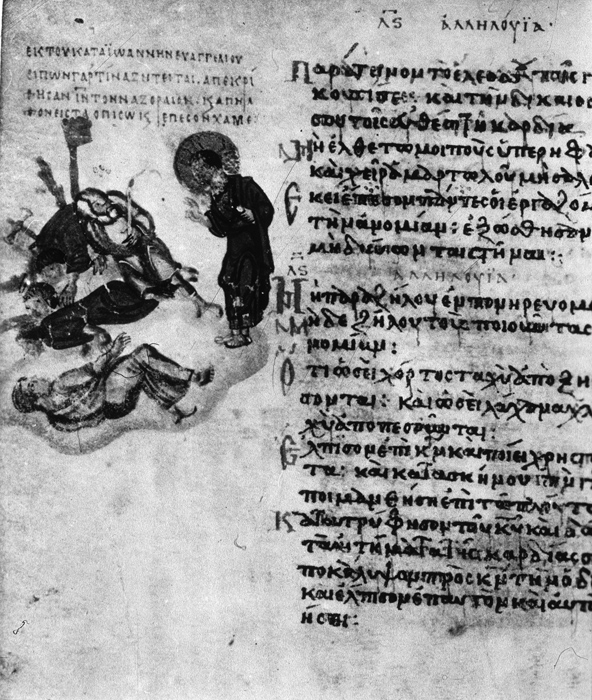 λς ἀλληλούϊα
ΕΚ ΤΟΥ ΚΑΤΑ ΙΩΑΝΝΗΝ ΕΥΑΓΓΕΛΙΟΥ
ΕΙΠΩΝ ΓΑΡ ΤΙΝΑ ΖΗΤΕΙΤΑΙ ΑΠΕΚΡΙ
ΘΗΣΑΝ ΙΝ ΤΟΝ ΝΑΖΟΡΑΙΟΝ Κ ΑΠΗΛ
ΘΟΝ ΕΙΣ ΤΑ ΟΠΙΣΩ Κ ΕΠΕΣΟΝ ΧΑΜΕ
Παράτεινον τὸ ἔλεός
καὶ τὴν δικαιοσ
σου τοῖς εὐθέσι τῇ καρδία
Μὴ ἐλθέτω μοι ποὺς ὑπερηφα
καὶ χεὶρ ἁμαρτωλοῦ μὴ σαλε
Ἐκεῖ ἔπεσον πάντες οἱ ἐργαζομ
τὴν ἀνομίαν: ἐξώσθησαν
μὴ δύνωνται στῆναι:
λς ἀλληλούϊα
Μὴ παραζήλου ἐν πονηρευομ
μηδὲ ζήλου τοὺς ποιοῦντας
νομίαν:
Ὅτι ὡσεὶ χόρτος ταχὺ ἀποξη
σονται: καὶ ὡσεὶ λάχανα χλ
ἀποπεσοῦνται:
Ἔλπισον ἐπὶ κν καὶ ποίει χρησ
τα: καὶ κατασκήνου τὴν γῆ
ποιμανθήσῃ ἐπὶ τῷ πλούτ
Κατατρύφησον τοῦ κυ καὶ δώ
τὰ αἰτήματα τῆς καρδίας σ
ποκάλυψον πρὸς κν τὴν ὁδ
καὶ ἔλπισον ἐπ αὐτὸν καὶ αὐτ
ήσει: